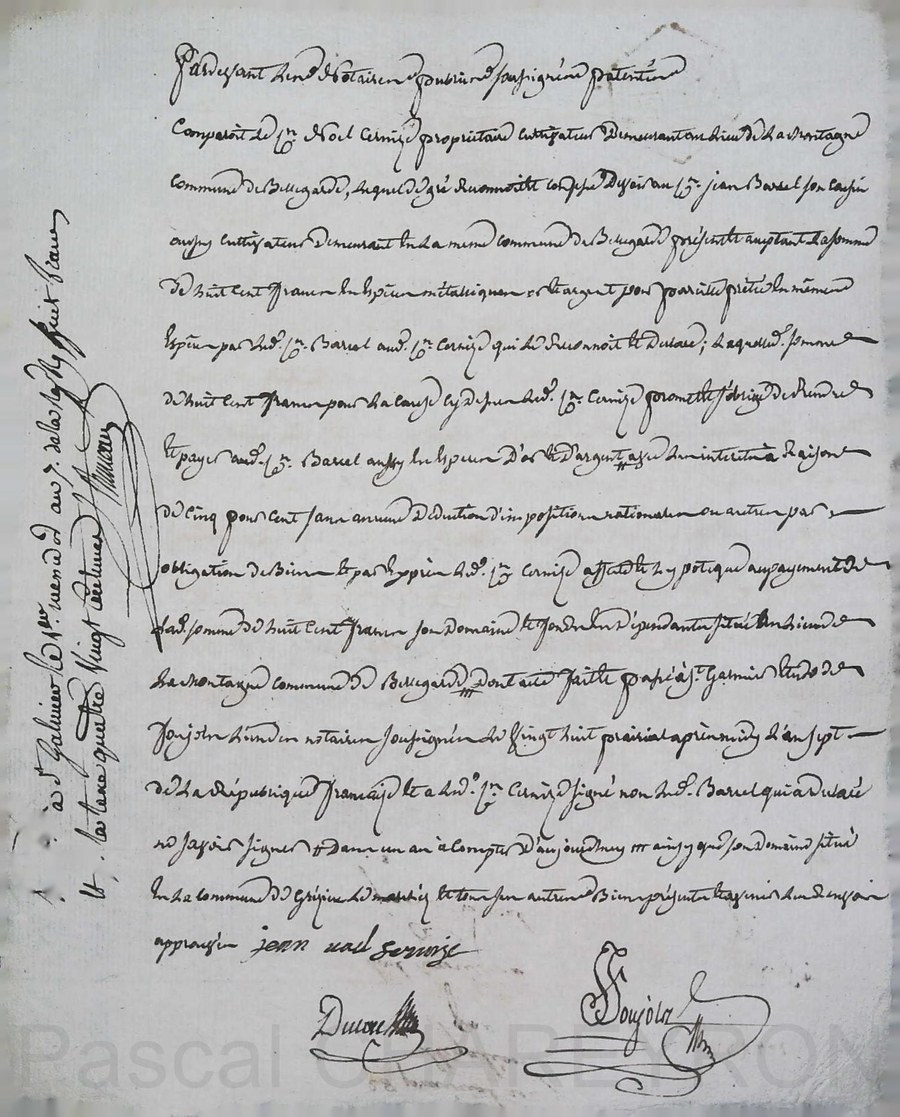 Pardevant Les Notaires publics soussignés patentés
Comparoit Le Sr. Noel Cernize propriétaire Cultivateur Demeurant au Lieu de La Montagne
Commune de Bellegarde, Lequel de gré Reconnoit et Confesse Devoir au Sr. jean Barcel son Cousin
aussy Cultivateur Demeurant En La meme Commune de Bellegarde présent et acceptant La somme
De huit Cent francs En Espèces métalliques or et argent pour pareille prêtée En mêmes
Espèces par Led. Sr. Barcel aud. Sr. Cernize qui Le Reconnoit et Declare; Laquelle d. somme
de huit Cent francs pour La Cause Cy dessus Led. Sr. Cernize promet et s'oblige de Rendre
et payer aud. Sr. Barcel aussy En Espèces D'or et D'argent # avec Les interêts à Raison
de Cinq pour Cent sans aucune Déduction d'impositions nationales ou autres par
obligation de Biens et par Exprès Led. Sr. Cernize affecte et hypotèque au payement de
Lad. somme de huit Cent francs son Domaine et fonds En Dépendants situé En Lieu de
La Montagne Commune de Bellegarde ### Dont acte fait et passé à St. Galmier Etude de
Soujols L'un des notaires soussignés Le vingt huit prairial après midy L'an sept
de La République française et a Led. Sr. Cernize signé non Led. Barcel qui a Déclaré
ne savoir signer # Dans un an à Compter D'aujourdhuy ### ainsy que son Domaine situé
En La Commune de Grézieu Le et tous ses autres Biens présents et avenir Les Renvois
approuvés jean noel sernize
Soujols
à St. Galmier Le 1er. messidor an 7. de La Rép. huit francs